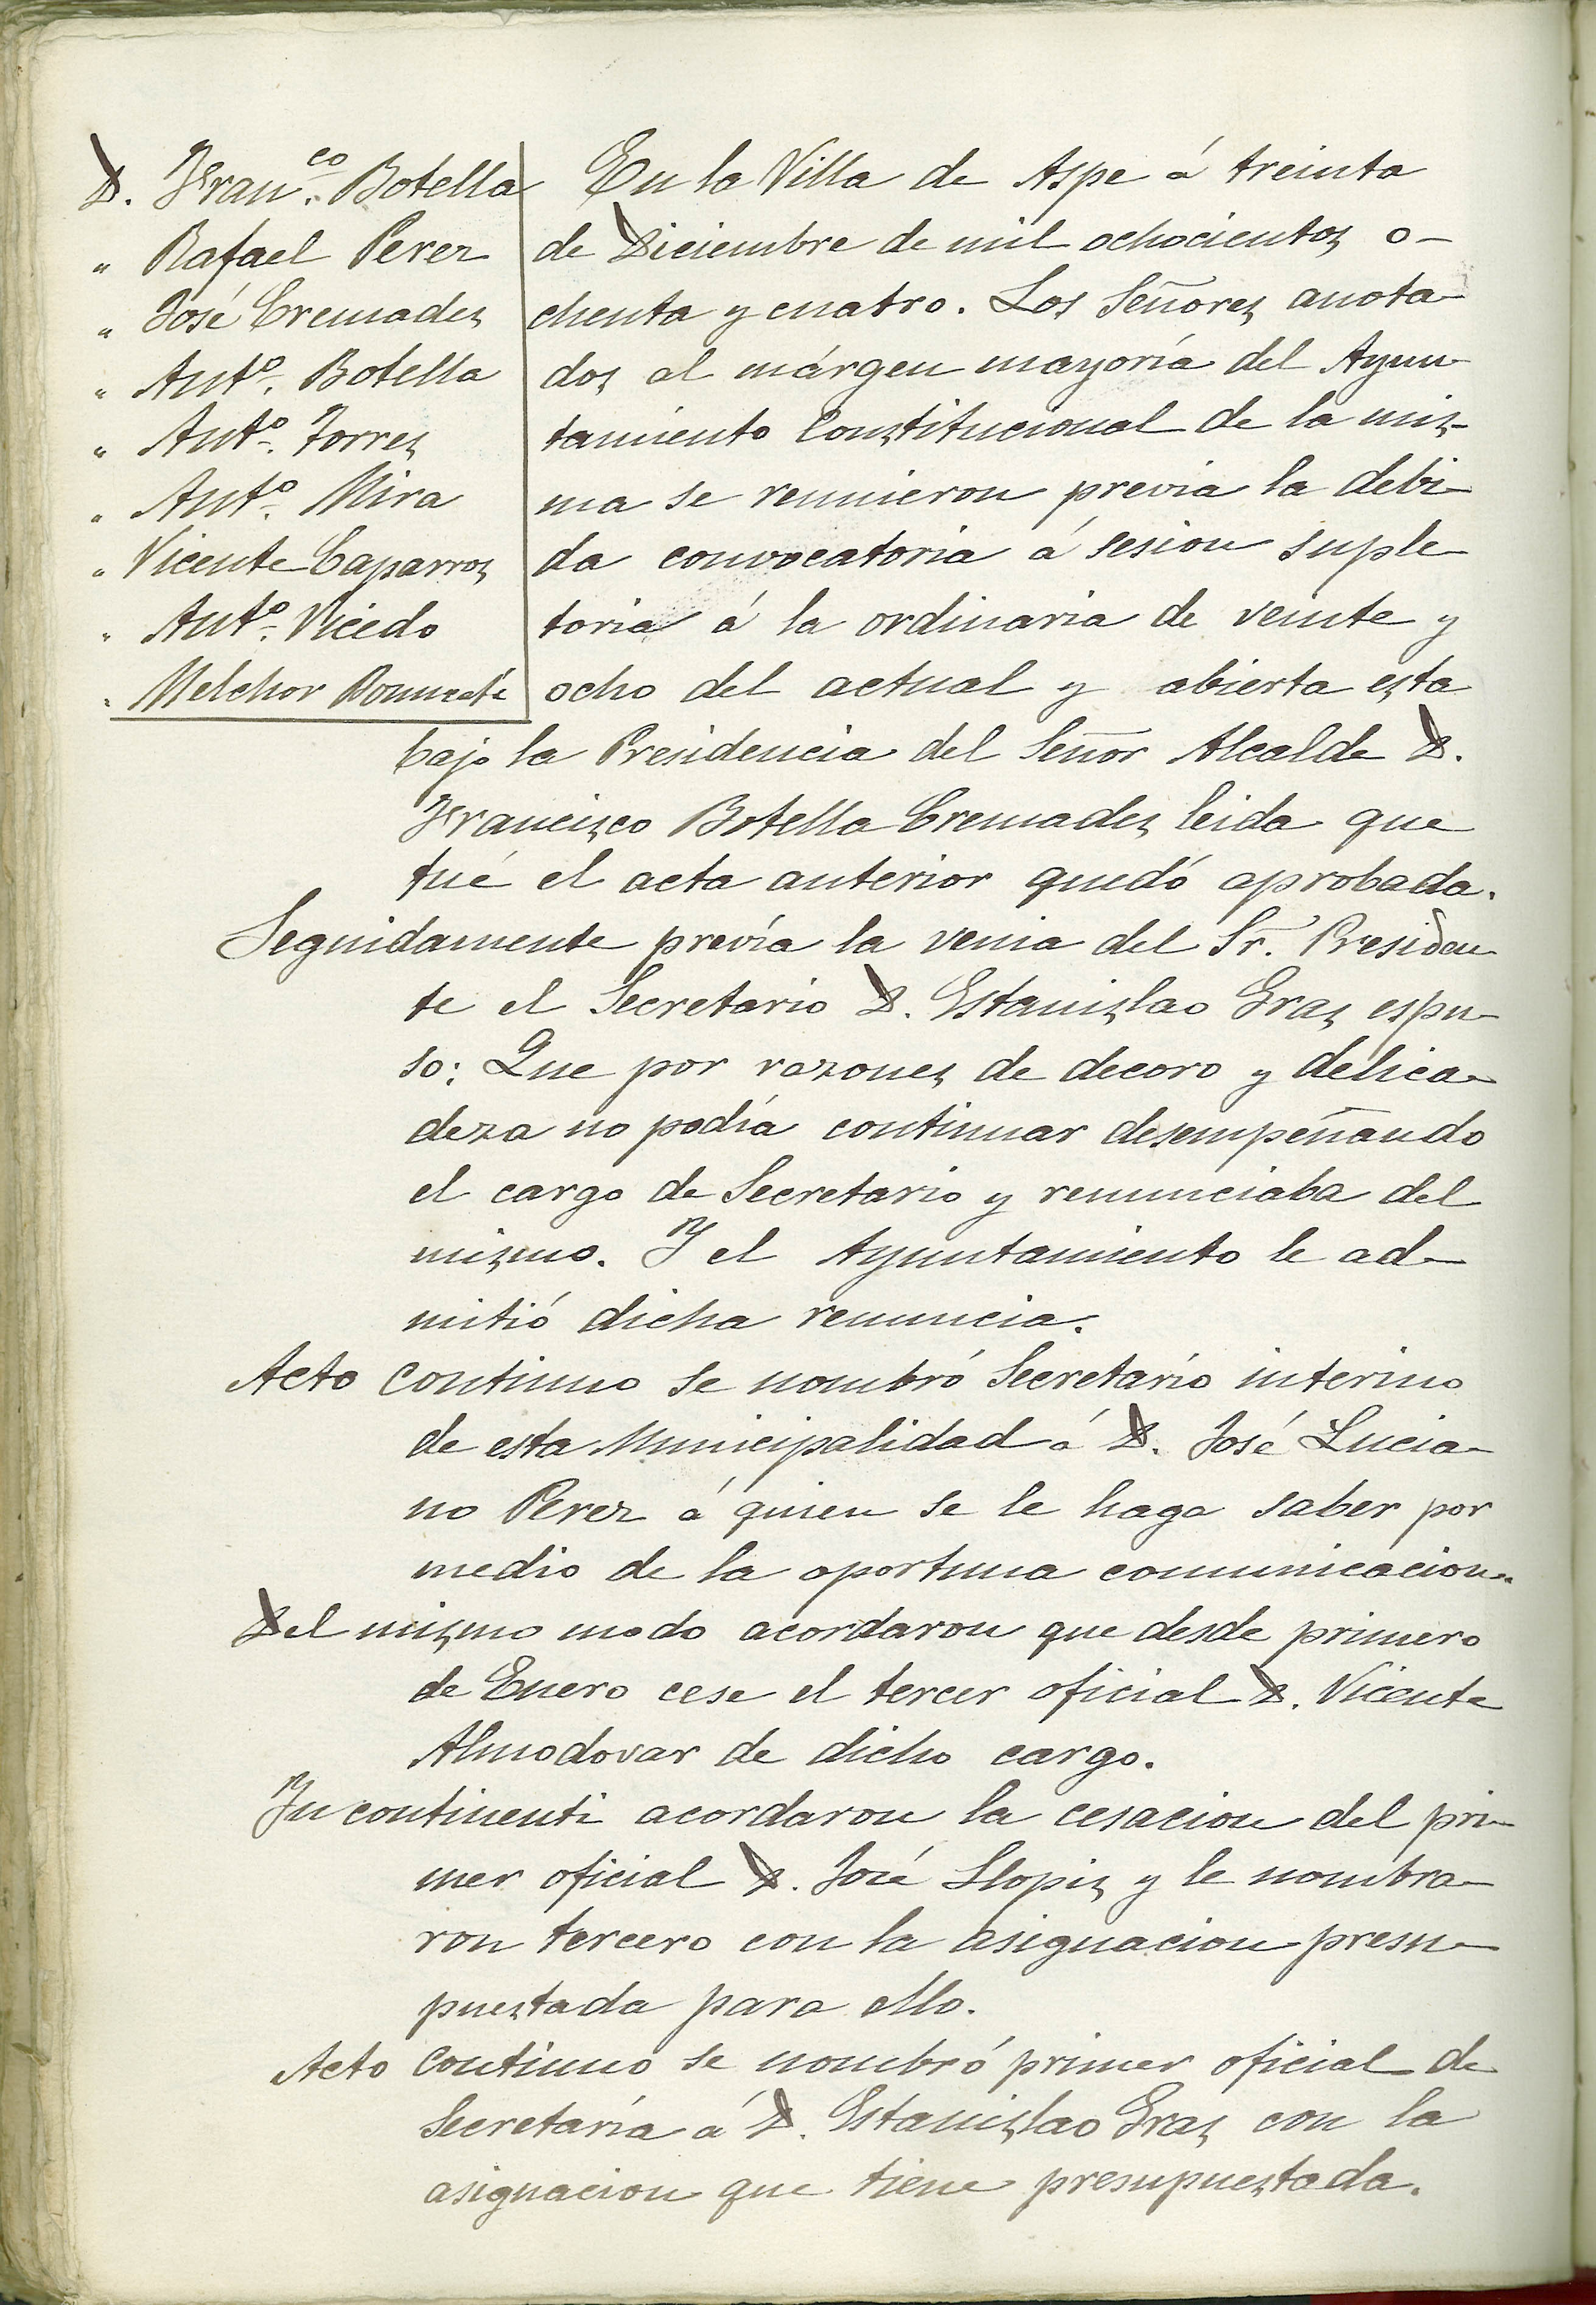 D. Fran.co Botella
" Rafael Perez
" José Cremades
" Ant.o Botella
" Ant.o Torres
" Ant.o Mira
" Vicente Caparros
" Ant.o Vicedo
" Melchor
En la Villa de Aspe á treinta
de Diciembre de mil ochocientos o-
chenta y cuatro. Los Señores anota-
dos al márgen mayoría del Ayun-
tamiento Constitucional de la mis-
ma se reunieron previa la debi-
da convocatoria á sesion suple-
toria á la ordinaria de veinte y
ocho del actual y abierta esta
bajo la Presidencia del Señor Alcalde D.
Francisco Botella Cremades leida que
fué el acta anterior quedó aprobada.
Seguidamente prevía la venia del Sr. Presiden-
te el Secretario D. Estanislao Gras espu-
so: Que por razones de decoro y delica-
deza no podía continuar desempeñando
el cargo de Secretario y renunciaba del
mismo. Y el Ayuntamiento le ad-
mitió dicha renuncia.
Acto continuo se nombró Secretario interino
de esta Municipalidad á D. José Lucia-
no Perez á quien se le haga saber por
medio de la oportuna comunicacion.
Del mismo modo acordaron que desde primero
de Enero cese el tercer oficial D. Vicente
Almodovar de dicho cargo.
In continenti acordaron la cesacion del pri-
mer oficial D. José Llopis y le nombra-
ron tercero con la asignacion presu-
puestada para ello.
Acto continuo se nombró primer oficial de
Secretaría á D. Estanislao Gras con la
asignacion que tiene presupuestada.